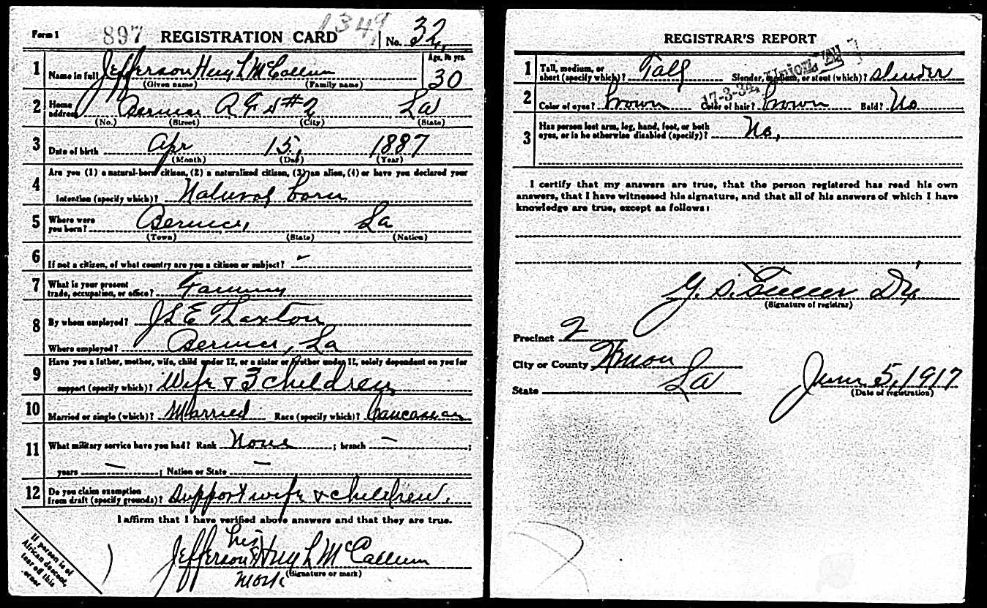 Form 1 897 REGISTRATION CARD 1349 No. 32
1 Name in full Jefferson Hugh McCallum Age, in yrs. 30
(Given name) (Family name)
2 Home address Bernice R F D #2 La
(No.) (Street) (City) (State)
3 Date of birth Apr 15, 1887
(Month) (Day) (Year)
4 Are you (1) a natural-born citizen, (2) a naturalized citizen, (3) an alien, (4) or have you declared your
intention (specify which)? Natural born
5 Where were you born? Bernice, La
(Town) (State) (Nation)
6 If not a citizen, of what country are you a citizen or subject? -
7 What is your present trade, occupation, or office? Farming
8 By whom employed? Thaxton
Where employed? Bernice, La
9 Have you a father, mother, wife, child under 12, or a sister or brother under 12, solely dependent on you for
support (specify which)? Wife & 3 children
10 Married or single (which)? Married Race (specify which)? Caucasian
11 What military service have you had? Rank None ; branch - ;
years - ; Nation or State -
12 Do you claim exemption from draft (specify grounds)? Support wife & children.
I affirm that I have verified above answers and that they are true.
his
Jefferson Hugh McCallum
(Signature or mark)
mark
If person is of
African descent,
tear off this
corner
REGISTRAR'S REPORT
1 Tall, medium, or short (specify which)? Tall Slender, medium, or stout (which)? slender
2 Color of eyes? brown Color of hair? brown Bald? No
3 Has person lost arm, leg, hand, foot, or both
eyes, or is he otherwise disabled (specify)? No,
I certify that my answers are true, that the person registered has read his own
answers, that I have witnessed his signature, and that all of his answers of which I have
knowledge are true, except as follows:
(Signature of registrar)
Precinct 2
City or County Union
State La
June 5, 1917
(Date of registration)